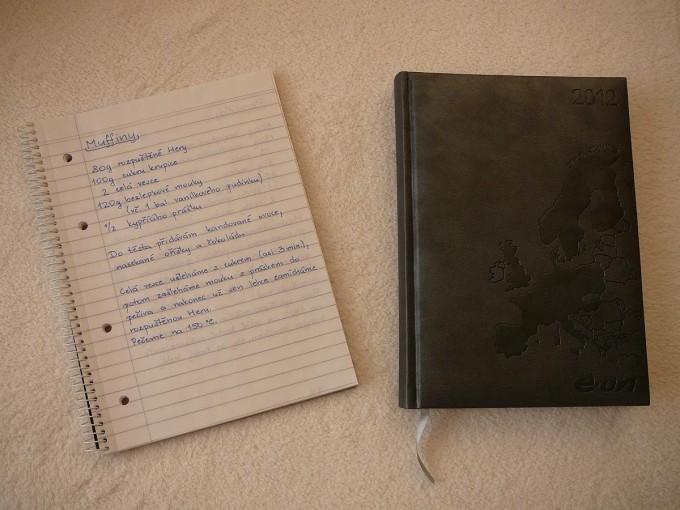 Muffiny
80g rozpuštěné Hery
100g cukru krupice
2 celá vejce
120g bezlepkové mouky
(vč 1 bal vanilkového pudinku)
1/2 kypřícího prášku
Do těsta přidávám kandované ovoce,
nasekané oříšky a čokoládu.
Celá vejce ušleháme s cukrem (asi 3 min),
potom zašleháme mouku s práškem do
pečiva a nakonec už jen lehce zamícháme
rozpuštěnou Heru.
Pečeme na 150 °C.
2012
e.on